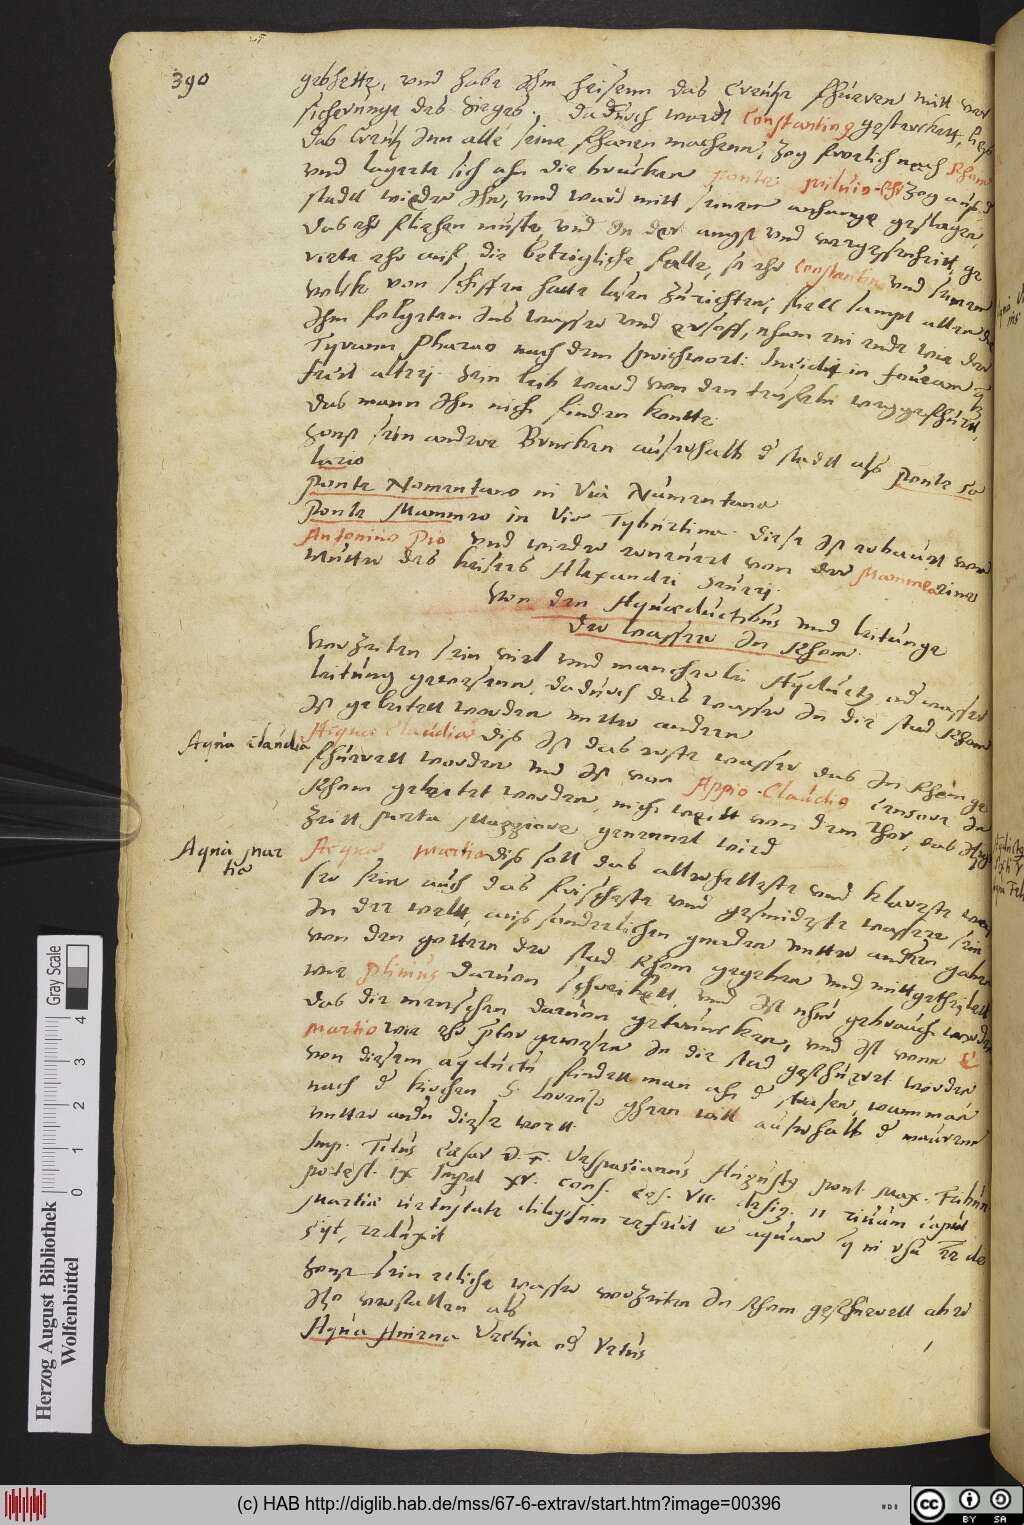 390
gehette, und habe Ihm heisenn das Creutz fhueren mitt ver
sicherunge des Sieges. dadurch wardt Constantinus gesterckett, lies
das Creutz Inn alle seine fhanen machenn, zog froelich nach Rhom
und lagerte sich ahn die brucken ponte miluio. Ehr zog aus d
stadt wieder Ihn, und ward mitt seinem anhange geslagen,
das ehr fliehen muste, und In der angst und vergessenheitt ge
riete ehr auf die betriegliche falle, so ehr Constantino und seinem
volck von schiffen hatte lasen zurichten, fiell sampt allen die
Ihm folgeten Ins wasser und ersoff, nham ein ende wie der
Tyrann Pharao nach dem sprichwort: Incidit in foueam
fecit alteri. Sein leib ward von den teufeln weggefhuret,
das mann Ihn nich finden konnte.
Sonst sein andere Brucken auserhalb d stadt als Ponte sa
lario
Ponte Nomentano in Via Numentana
Ponte Mammeo in Via Tyburtina. diese Ist erbauet von
Antonino Pio und wieder erneuert von der Mammea einer
Mutter des keisers Alexandri Seueri.
Von den Aquæductibus und leitunge
der wasser In Rhom.
Vorzeiten sein viel und mancherlei Aqduct od wasser
leitung gewesenn, dadurch das wasser In die stad Rhom
Ist geleitett worden unter anderen
Aqua Claudia
Aqua Claudia dis Ist das erste wasser das In Rhom ge
fhuerett worden und Ist von Appio Claudio censore In
Rhom geleitet worden, nich weitt von dem thor, das Itzo
Zeitt porta Maggiore genennet wird
Aqua mar
tia
Aqua martia dis soll das allerhelleste und klareste was
ser sein auch das frischeste und gesundeste wasser sein
In der welt, aus sonderlichen gnaden unter andern gaben
von den gottern der stad Rhom gegeben und mittgetheilett
wie Plinius daruon schreibett, und Ist nhur gebrauch worden
das die menschen daruon getruncken, und Ist vonn
Martio wie ehr Ptor gewesen In die stad gefhuret worden
von diesem aqductu findett man ahn d strasen, wann man
nach d kirchen S. Lorenzo ghenn will auserhalb d mauren
unter andn diese wort.
Imp. Titus Cæsar D. F. Vespasianus Augustg pont. Max. Tribun
potest. IX Impat XV. Cens. Cos. VII. desig. II riuum aquæ
Martiæ uetustate dilapsum refecit et aquam q in usu esse de
sijt, reduxit
Sonst sein etliche wasser vorzeiten In Rhom gefhuerett aber
Itzo verfallen als
Aqua Aniena Vechia od Vetus
Herzog August Bibliothek
Wolfenbüttel
Gray Scale
0 1 2 3 4
(c) HAB http://diglib.hab.de/mss/67-6-extrav/start.htm?image=00396
cc BY SA